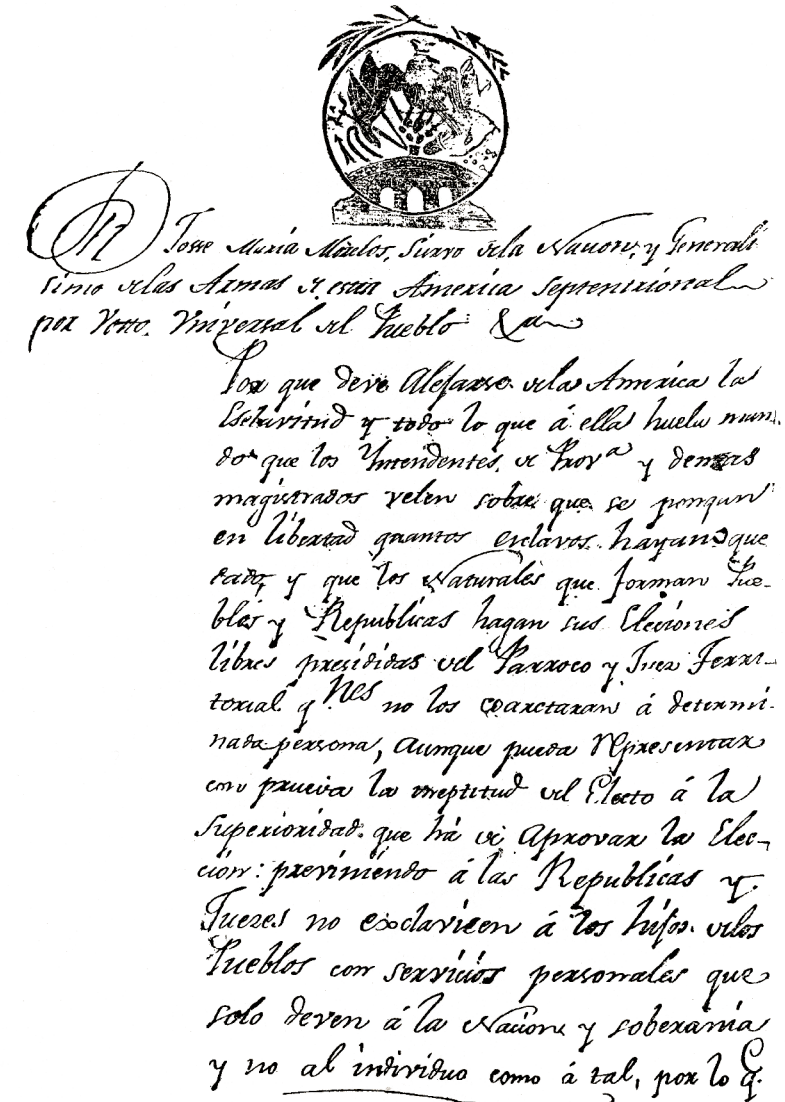 Dn Josse Maria Morelos, Siervo dela Nacion, y Generali
simo delas Armas de esta America Septentrional
por Votto. Vniversal del Pueblo &a
Por que deve Alejarse dela America la
Esclavitud y todo lo que á ella huela man.
do que los Yntendentes, de Prova y demas
magistrados velen sobre que se pongan
en libertad quantos esclavos hayan que
dado, y que los Naturales que forman Pue-
blos y Republicas hagan sus Elecciones
libres presididas del Parroco y Juez Terri-
torial qnes no los coarctaran á determi-
nada persona, aunque pueda Representar
con prueva la ineptitud del Electo á la
Superioridad que há de aprovar la Elec-
ción: previniendo á las Republicas y
Juezes no exclavicen á los hijos. delos
Pueblos con servicios personales que
solo deven á la Nacion y soberania
y no al individuo como á tal, por lo q.